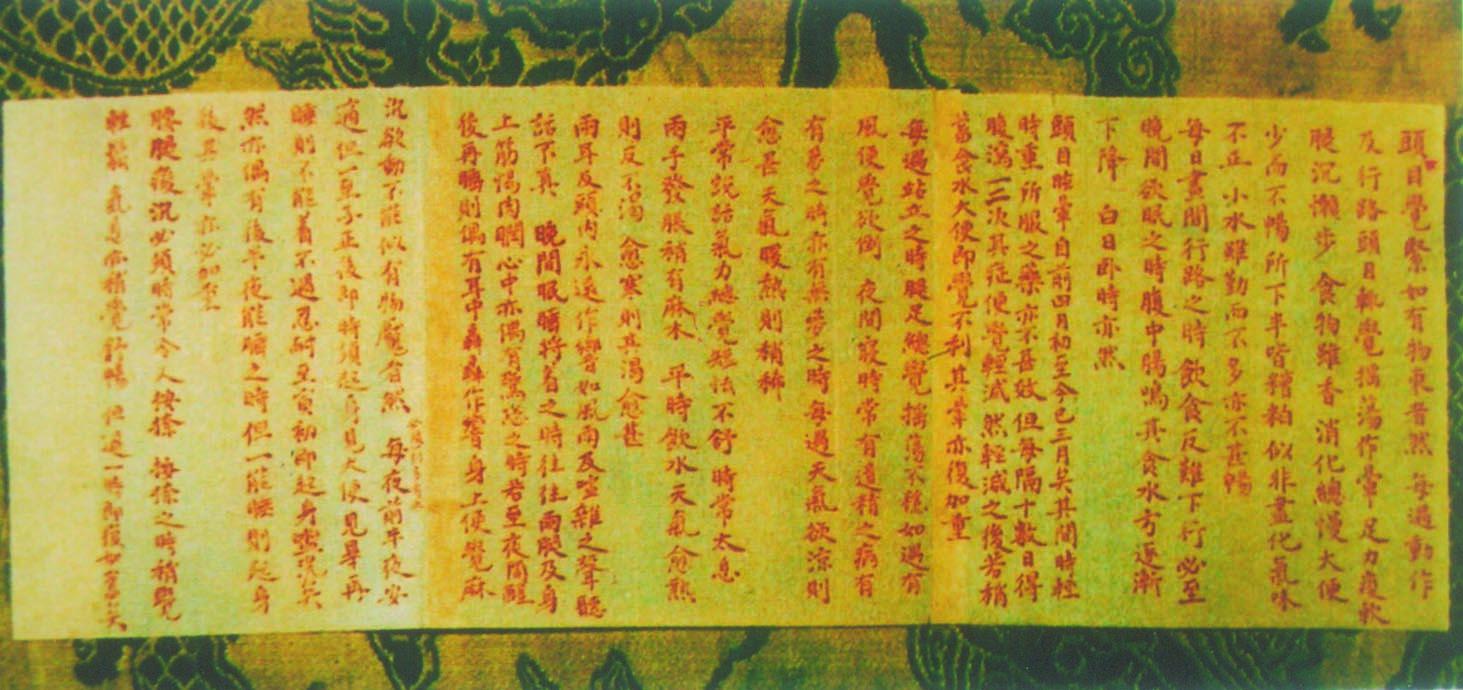 頭目覺緊如有物束者然 每遇動作
及行路頭目輒覺搖蕩作暈 足力痠軟
腿沉懶步 食物雖香 消化總慢 大便
少而不暢 所下半皆糟粕 似非盡化 氣味
不正 小水雖勤而不多亦不甚暢
每日晝間行路之時 飲食反難下行 必至
晚間欲眠之時腹中腸鳴其食水方逐漸
下降 白日卧時亦然
頭目眩暈自前四月初至今已三月矣其間時輕
時重所服之藥亦不甚效但每隔十數日得
腹瀉一二次其症便覺輕減然輕減之後若稍
蓄食水大便即覺不利其暈亦復加重
每遇站立之時腿足總覺搖蕩不穩如遇有
風便覺欲倒 夜間寢時常有遺精之病有
有勞之時亦有無勞之時每遇天氣欲涼則
愈甚天氣暖熱則稍
平常說話氣力總覺短怯不舒時常太息
兩手發脹稍有麻木 平時飲水天氣愈熱
則反不渴 愈寒則其渴愈甚
兩耳及頭內永遠作響如風雨及嘈雜之聲聽
話不真 晚間眠臥將着之時往往兩腿及身
上筋惕肉瞤心中亦偶有驚恐之時若至夜間醒
後再睡則偶有耳中轟轟作響身上便覺麻
沉欲動不能似有物魘者然 每夜前半夜安
適但一至子正後即時須起身見大便見畢再
睡則不能着不過忍耐至寅初即起身盥洗矣
然亦偶有後半夜能睡之時但一能睡則起身
後其暈亦必加重
腰腿痠沉必須時常令人按捺 按捺之時稍覺
輕鬆 氣息亦稍覺舒暢 但過一時即復如舊矣